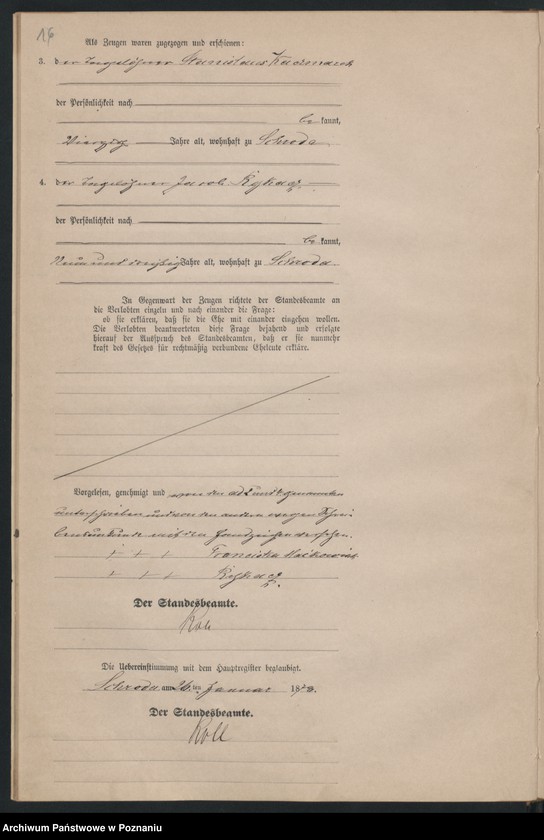 16
Als Zeugen waren zugezogen und erschienen:
3. der Tagelöhner Stanislaus Kaczmarek
der Persönlichkeit nach
be kannt,
Vierzig Jahre alt, wohnhaft zu Schroda
4. der Tagelöhner Jacob
der Persönlichkeit nach
be kannt,
Neun und dreißig Jahre alt, wohnhaft zu Schroda
In Gegenwart der Zeugen richtete der Standesbeamte an
die Verlobten einzeln und nach einander die Frage:
ob sie erklären, daß sie die Ehe mit einander eingehen wollen.
Die Verlobten beantworteten diese Frage bejahend und erfolgte
hierauf der Ausspruch des Standesbeamten, daß er sie nunmehr
kraft des Gesetzes für rechtmäßig verbundene Eheleute erkläre.
Vorgelesen, genehmigt und von den ad und genannten
unterschrieben und von den andern wegen Schrei-
bensunkunde mit den Handzeichen versehen.
+ + + Franciska
+ + +
Der Standesbeamte.
Koll
Die Uebereinstimmung mit dem Hauptregister beglaubigt.
Schroda am 26 ten Januar 18
Der Standesbeamte.
Koll
Archiwum Państwowe w Poznaniu